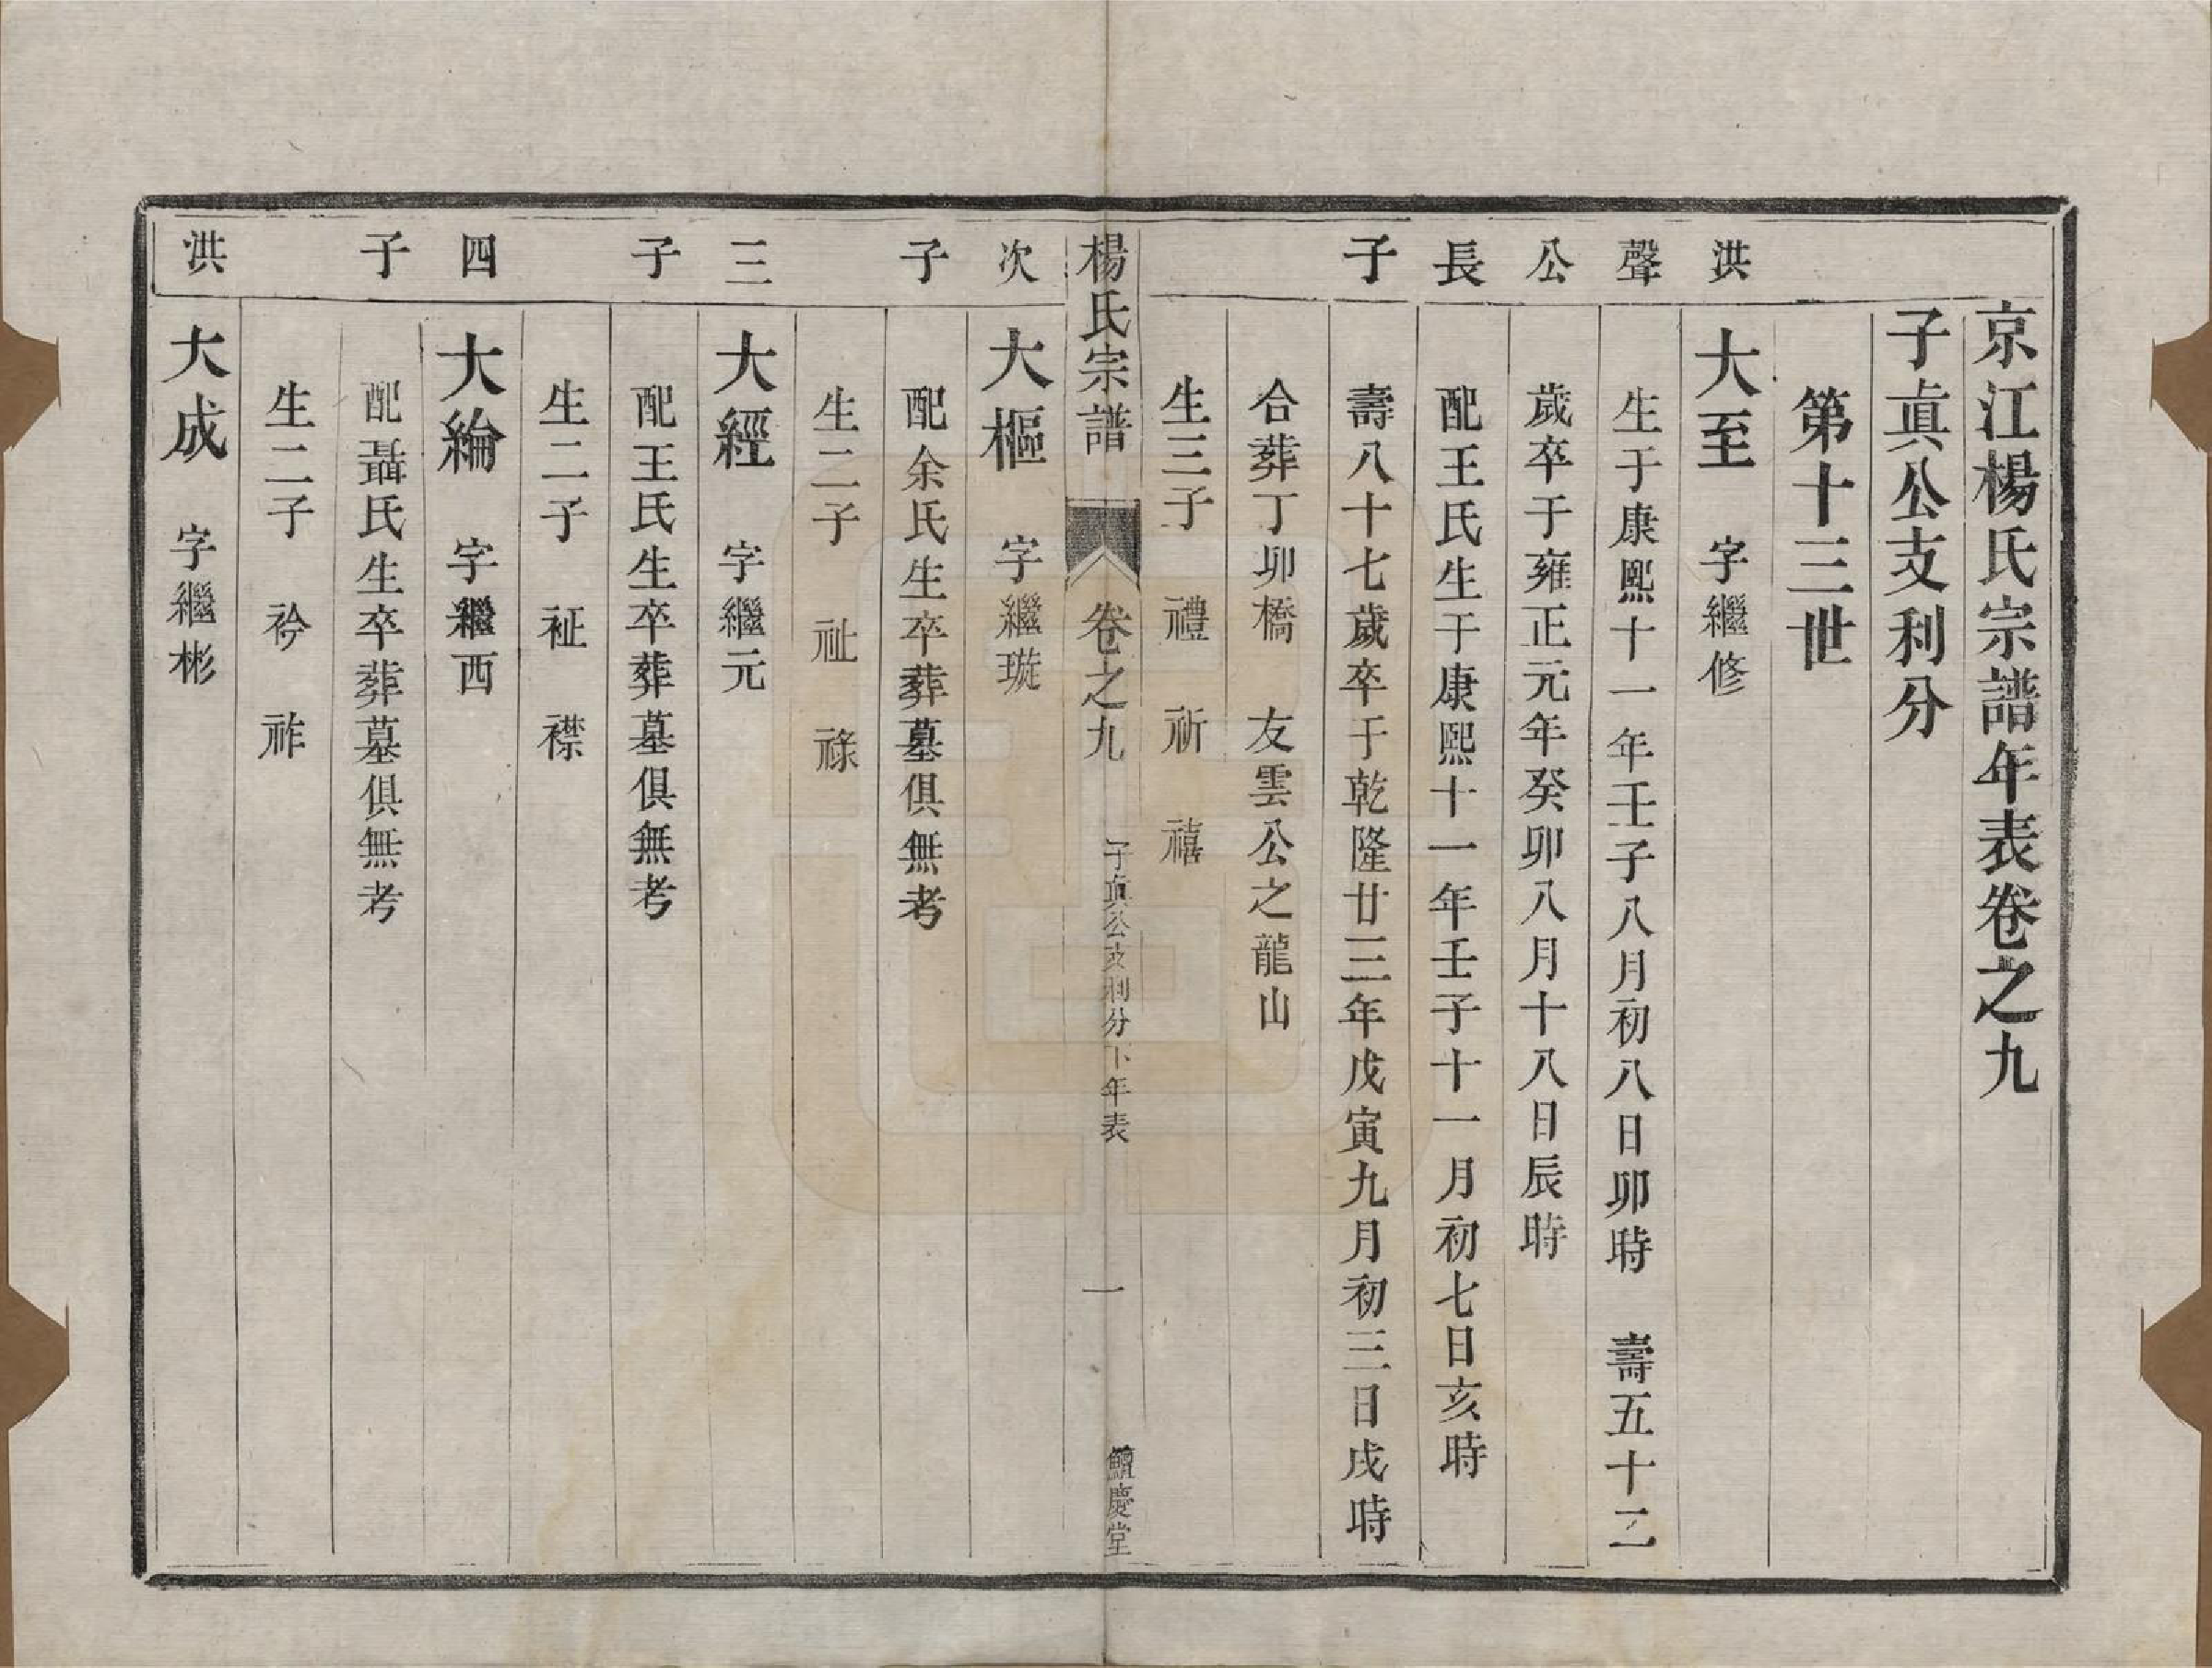 京江楊氏宗譜年表卷之九
子眞公支利分
第十三世
洪聲公長子
大至　字繼修
生于康熙十一年壬子八月初八日卯時　壽五十二
歲卒于雍正元年癸卯八月十八日辰時
配王氏生于康熙十一年壬子十一月初七日亥時
壽八十七歲卒于乾隆廿三年戊寅九月初三日戌時
合葬丁卯橋　友雲公之龍山
生三子　禮　祈　禧
楊氏宗譜　卷之九　子眞公支利分下年表　一　鱣慶堂
次子
大樞　字繼璇
配余氏生卒葬墓俱無考
生二子　祉　祿
三子
大經　字繼元
配王氏生卒葬墓俱無考
生二子　祉　襟
四子
大綸　字繼西
配聶氏生卒葬墓俱無考
生二子　衿　祚
洪
大成　字繼彬